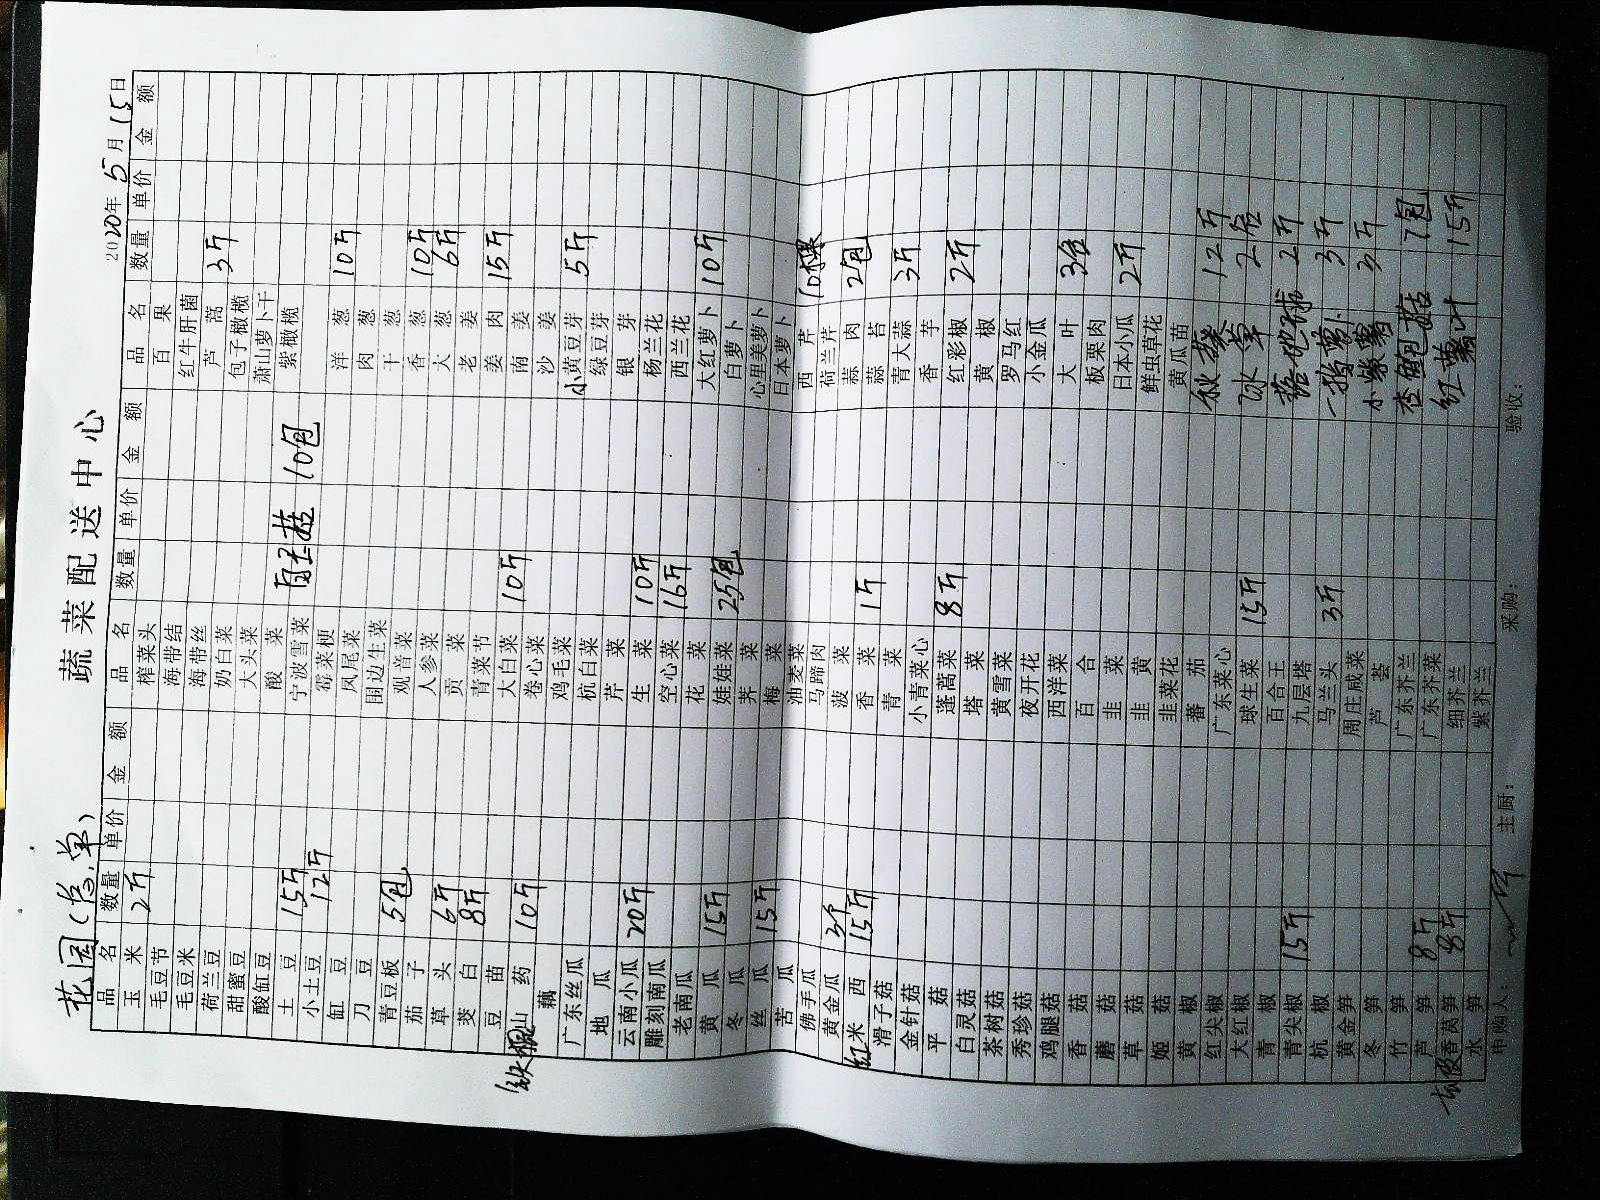 花园(总,单)
蔬菜配送中心
2020年5月15日
品名 数量 单价 金额 品名 数量 单价 金额 品名 数量 单价 金额
玉米 2斤 榨菜头 百果
毛豆节 海带结 红牛肝菌
毛豆米 海带丝 芦蒿 3斤
荷兰豆 奶白菜 包子橄榄
甜蜜豆 大头菜 萧山萝卜干
酸缸豆 酸菜 紫橄榄
土豆 15斤 宁波雪菜 白玉菇 10包
小土豆 12斤 霉菜梗 洋葱 10斤
缸豆 凤尾菜 肉葱
刀豆 围边生菜 干葱
青豆板 5包 观音菜 香葱 10斤
茄子 人参菜 大葱 6斤
草头 6斤 贡菜 老姜
茭白 8斤 青菜节 姜肉 15斤
豆苗 大白菜 10斤 南姜
铁棍山药 10斤 卷心菜 沙姜
藕 鸡毛菜 小黄豆芽 5斤
广东丝瓜 杭白菜 绿豆芽
地瓜 芹菜 银芽
云南小瓜 20斤 生菜 10斤 杨兰花
雕刻南瓜 空心菜 16斤 西兰花
老南瓜 花菜 大红萝卜 10斤
黄瓜 15斤 娃娃菜 25包 白萝卜
冬瓜 荠菜 心里美萝卜
丝瓜 15斤 梅菜 日本萝卜
苦瓜 油麦菜 西芹 10棵
佛手瓜 马蹄肉 荷兰芹
黄金瓜 3个 菠菜 蒜肉 2包
红米西 15斤 香菜 1斤 蒜苔
滑子菇 青菜 青大蒜 3斤
金针菇 小青菜心 香芋
平菇 蓬蒿菜 8斤 红彩椒 2斤
白灵菇 塔菜 黄椒
茶树菇 黄雪菜 罗马红
秀珍菇 夜开花 小金瓜
鸡腿菇 西洋菜 大叶 3包
香菇 百合 板栗肉
蘑菇 韭菜 日本小瓜 2斤
草菇 韭黄 鲜虫草花
姬菇 韭菜花 黄瓜苗
黄椒 蕃茄 秋葵 12斤
红尖椒 广东菜心
大红椒 球生菜 15斤 冰草 2盒
青椒 百合王 地球 2斤
青尖椒 15斤 九层塔
杭椒 马兰头 3斤 一指萝卜 3斤
黄金笋 周庄咸菜 小紫薯 3斤
冬笋 芦荟
竹笋 广东芥兰 杏鲍菇 7包
芦笋 8斤 广东芥菜
香莴笋 8斤 细芥兰 红薯叶 15斤
水笋 紫芥兰
申购人: 主厨: 采购: 验收: